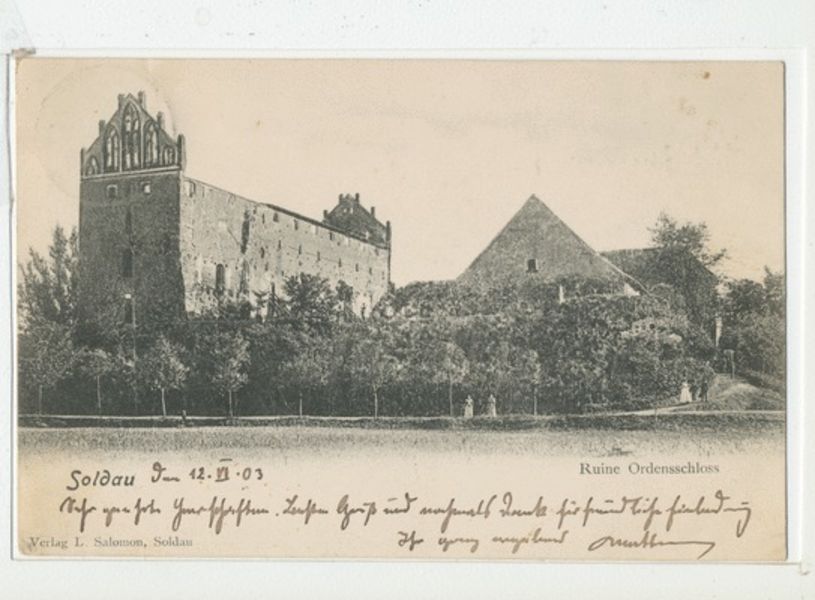 Ruine Ordensschloss
Soldau den 12.VI.03
Sehr geehrte Herrschaften. Besten Gruß und nochmals Dank für freundliche Einladung
Ihr ganz ergebener
Verlag L. Salomon, Soldau